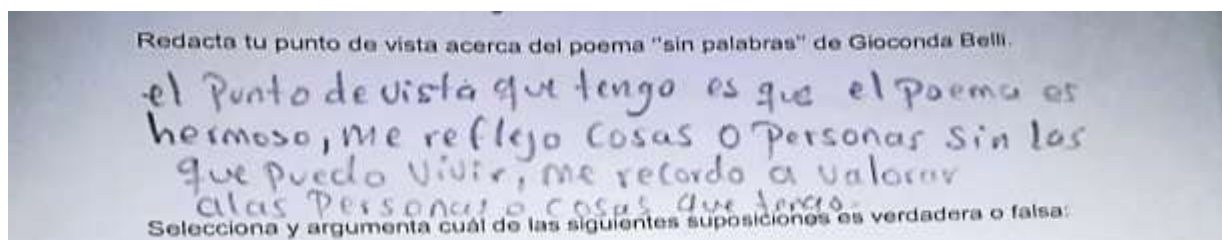 Redacta tu punto de vista acerca del poema "sin palabras" de Gioconda Belli.
el Punto de vista que tengo es que el poema es
hermoso, me reflejo cosas o Personas sin las
que puedo vivir, me recordo a valorar
alas Personas o cosas que tengo.
Selecciona y argumenta cuál de las siguientes suposiciones es verdadera o falsa: